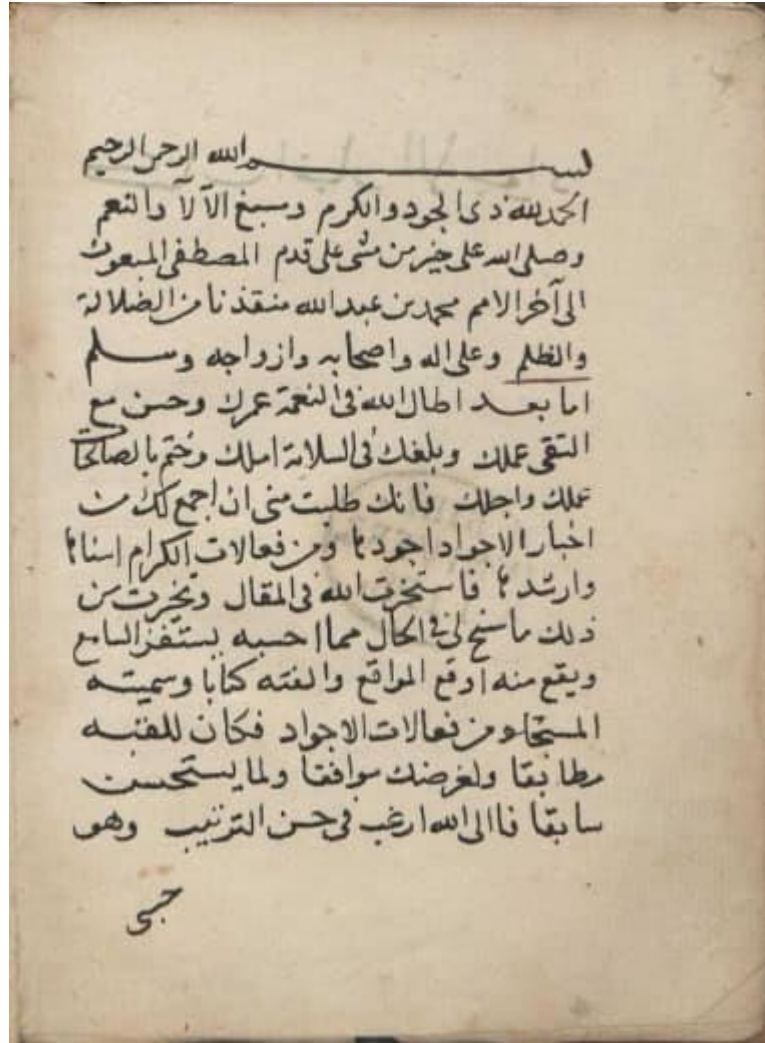 بسم الله الرحمن الرحيم
الحمد لله ذى الجود والكرم ومسبغ الآلآ والنعم
وصلى الله على خير من مشى على قدم المصطفى المبعوث
الى آخر الامم محمد بن عبد الله منقذنا من الضلالة
والظلم وعلى اله واصحابه وازواجه وسلم
اما بعد اطال الله فى النعمة عمرك وحسن مع
التقى عملك وبلغك فى السلامة املك وختم بالصالحات
عملك واجلك فانك طلبت منى ان اجمع لك من
اخبار الاجواد اجودها ومن فعالات الكرام اسناها
وارشدها فاستخرت الله فى المقال وتخيرت من
ذلك ما سنح لى فى الحال مما احسبه يستفز السامع
ويقع منه اوقع المواقع والفته كتابا وسميته
المستجاد من فعالات الاجواد فكان للفتبه
مطابقا ولغرضك موافقا ولما يستحسن
سابقا فاالى الله ارغب فى حسن الترتيب وهو
حسبى